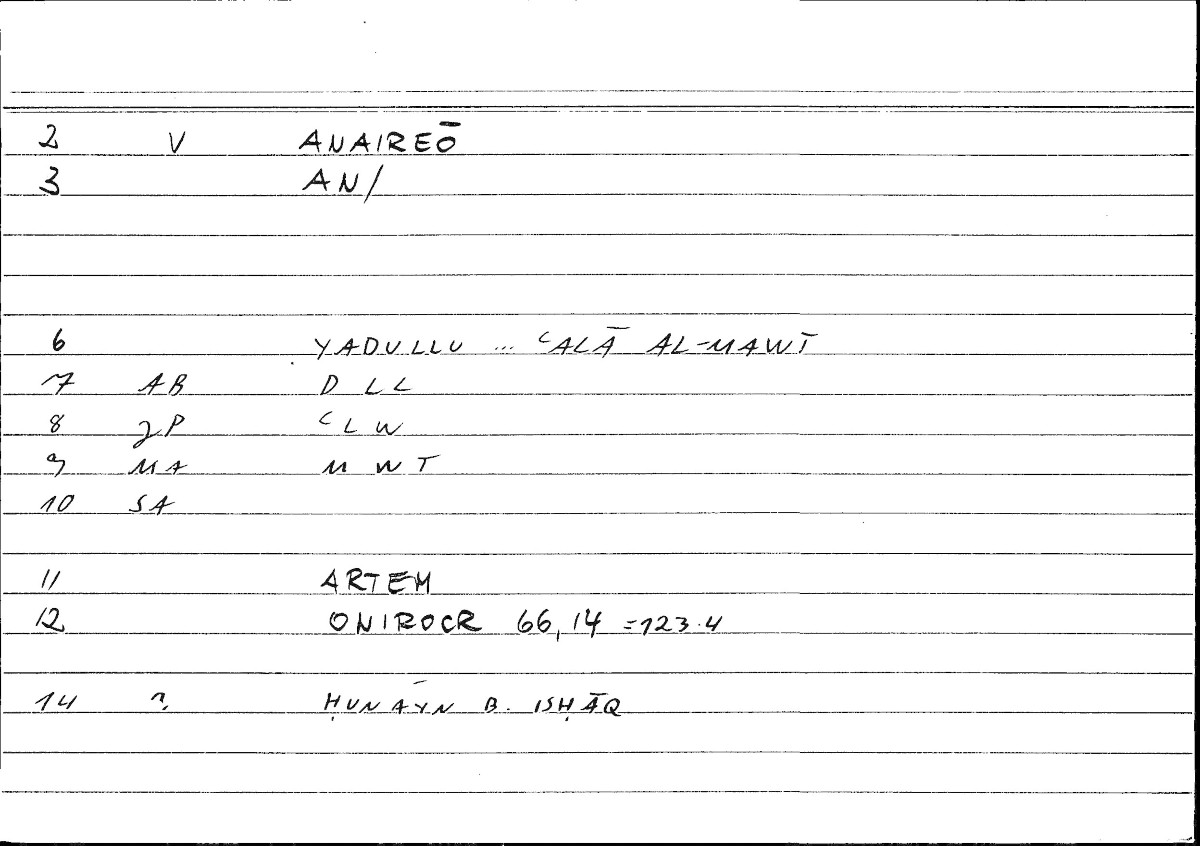 2 V ANAIREŌ
3 AN/
6 YADULLU ... ʿALĀ AL-MAWT
7 AB DLL
8 JP ʿLW
9 MA MWT
10 SA
11 ARTEM
12 ONIROCR 66,14 =123.4
14 ? ḤUNAYN B. ISḤĀQ